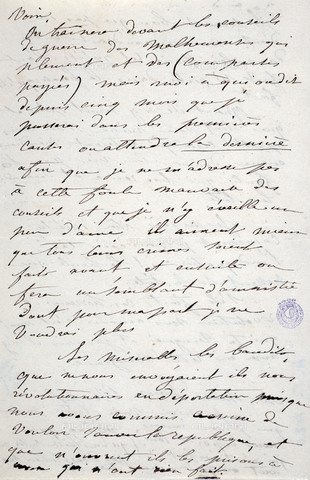 Voir,
On traînera devant les conseils
de guerre des malheureuses qui
pleurent et des (comparses
payés) mais moi à qui on dit
depuis cinq mois que je
passerai dans les premières
causes on attendra la dernière
afin que je ne m'adresse pas
à cette foule mauvaise des
conseils et que je n'y éveille un
peu d'âme ils aiment mieux
que tous leurs crimes soient
faits avant et ensuite on
fera un semblant d'amnistie
dont pour ma part je ne
voudrai plus
Les misérables les bandits,
que ne nous envoyaient ils nous
révolutionnaires en déportation puisque
nous avons commis le crime de
vouloir sauver la république, et
que n'ouvrent ils les prisons à
ceux qui n'ont rien fait